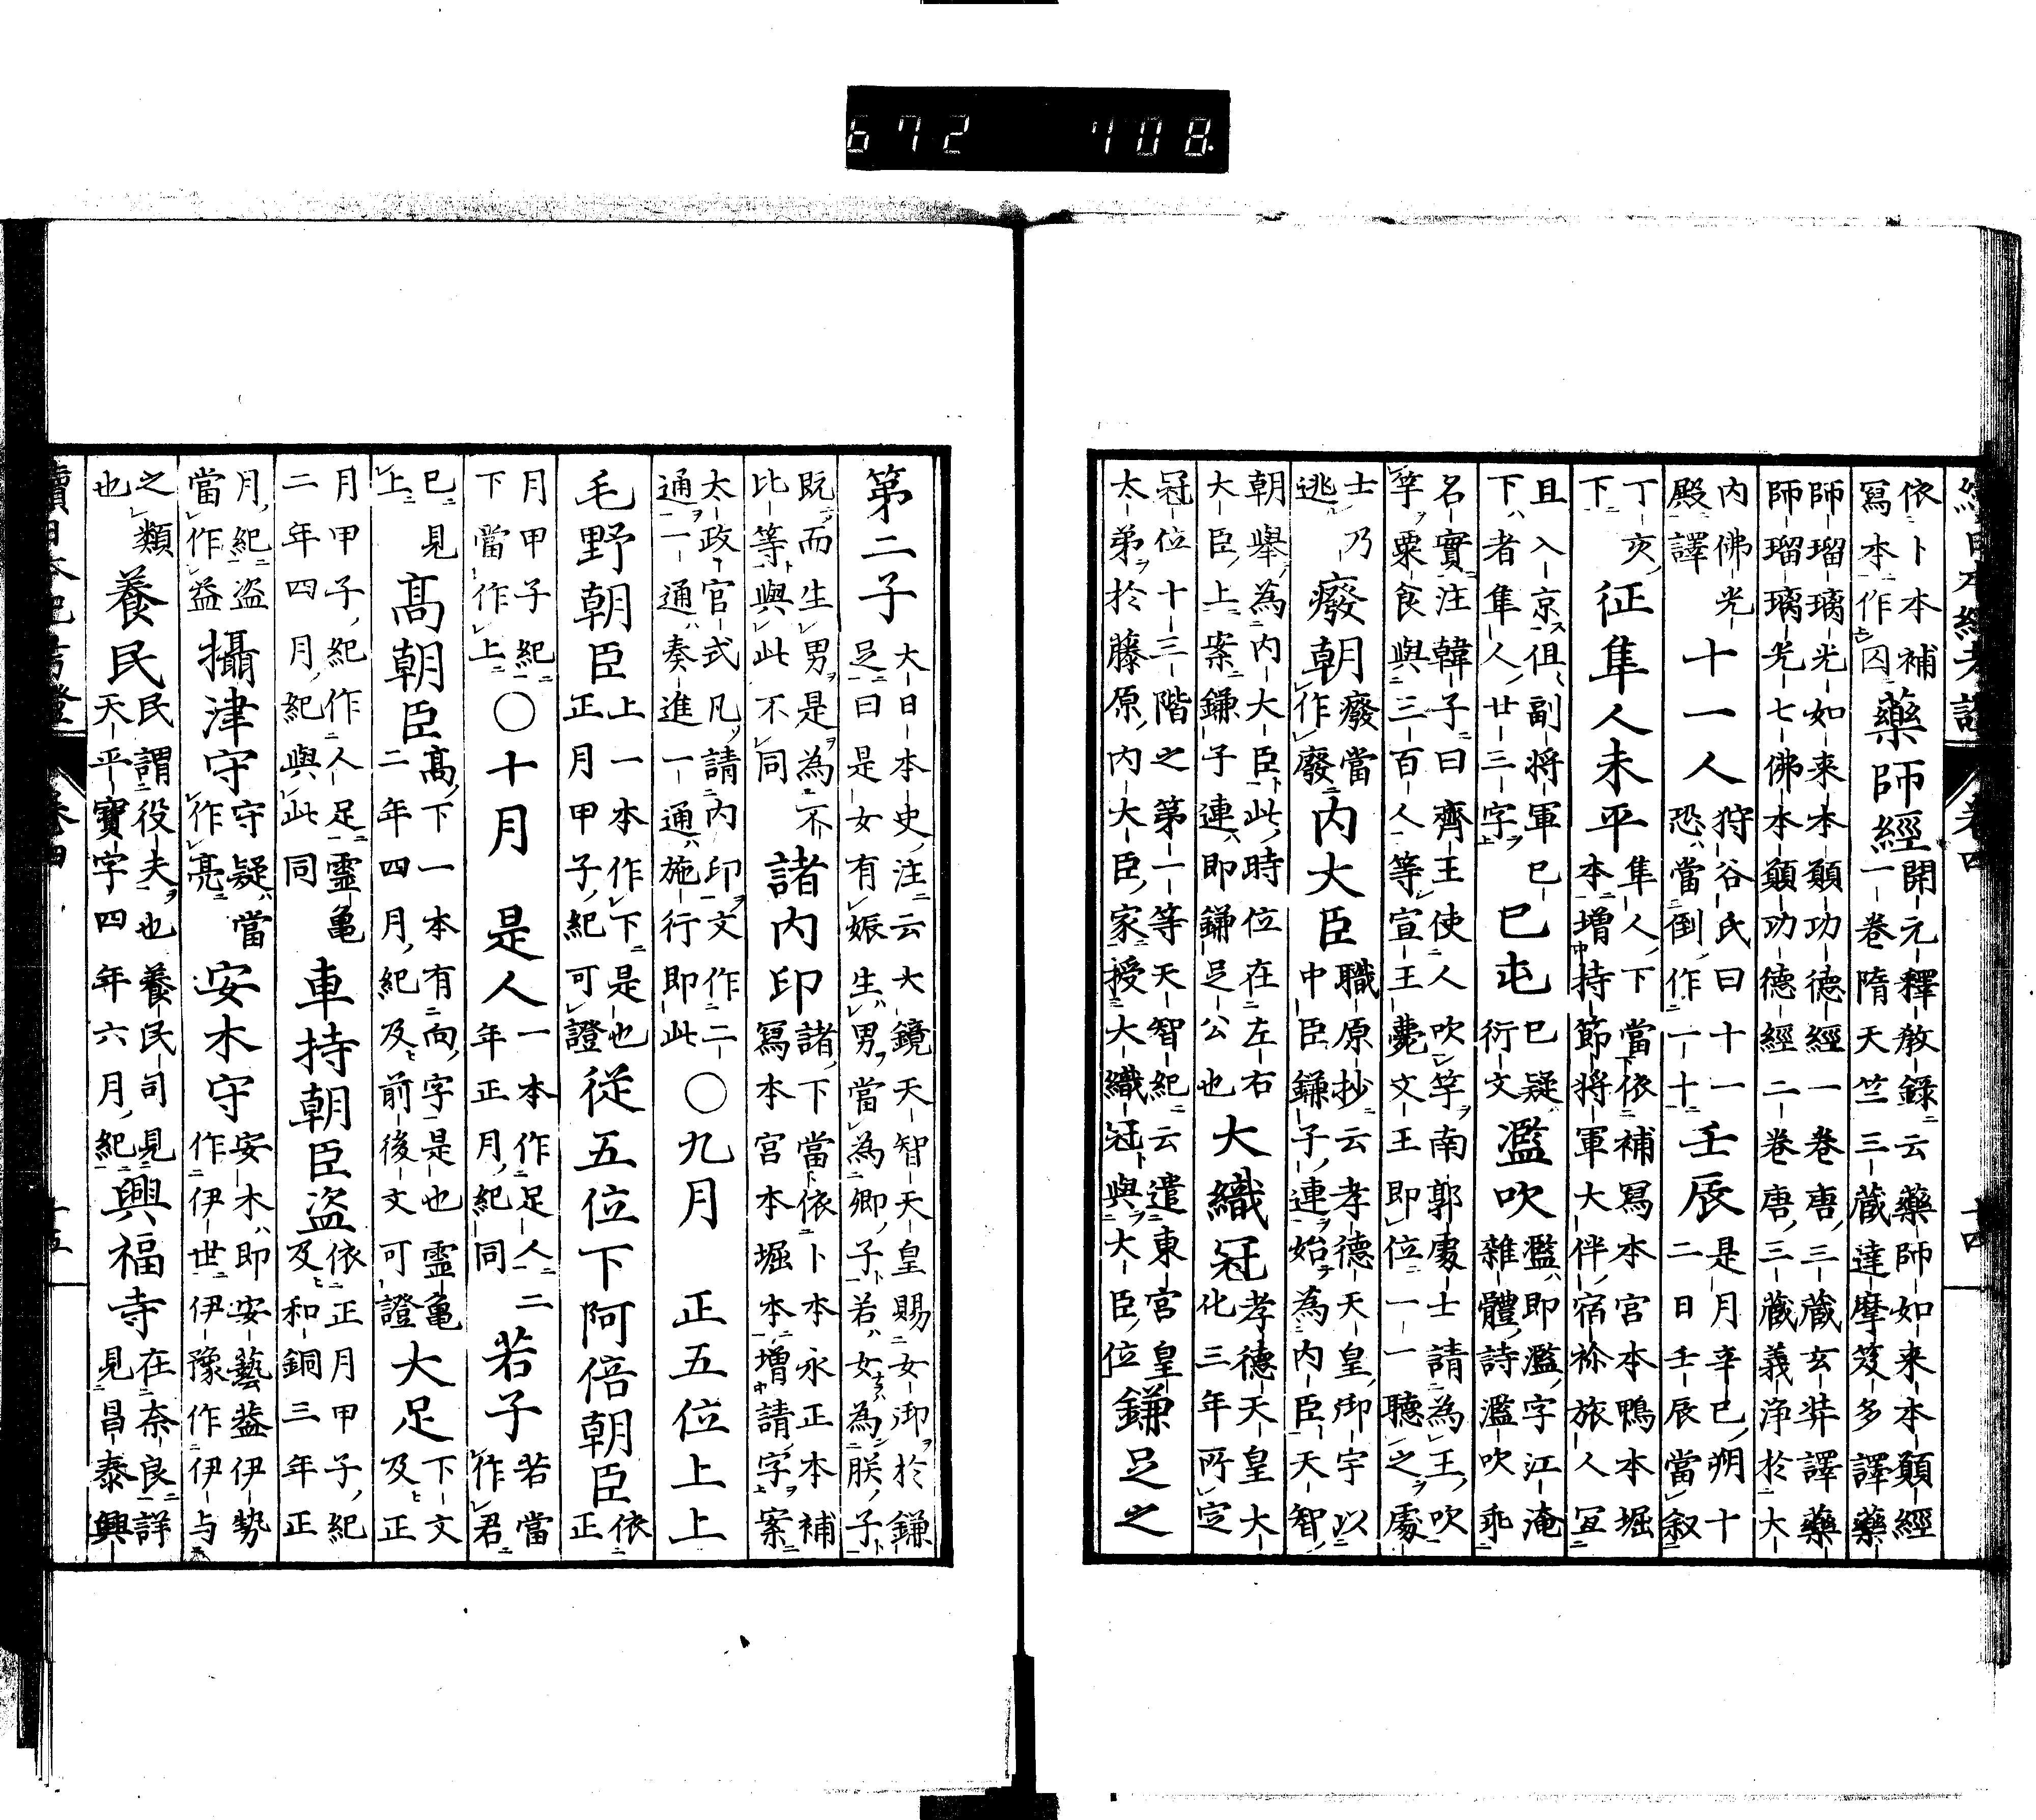 672 708
續日本紀考證 卷四 十四
依卜本補
寫本作囚
藥師經
開元釋教録云藥師如来本願經
一卷隋天竺三藏達摩笈多譯藥
師瑠璃光如来本願功德經一卷唐三藏玄奘譯藥
師瑠璃光七佛本願功德經二卷唐三藏義浄於大
内佛光
殿譯
十一人
狩谷氏曰十一
恐當倒作一十
壬辰
是月辛巳朔十
二日壬辰當叙
丁亥
下
征隼人未平
隼人下當依補寫本宮本鴨本堀
本增持節将軍大伴宿祢旅人宜
且入京但副将軍已
下者隼人廿三字
巳屯
已疑
衍文
濫吹
濫即濫字江淹
雜體詩濫吹乖
名實注韓子曰齊王使人吹竽南郭處士請為王吹
竽粟食與三百人等宣王薨文王即位一一聽之處
士乃
逃
癈朝
癈當
作廢
内大臣
職原抄云孝德天皇御宇以
中臣鎌子連始為内臣天智
朝擧為内大臣此時位在左右
大臣上案鎌子連即鎌足公也
大織冠
孝德天皇大
化三年所定
冠位十三階之第一等天智紀云遣東宮皇
太弟於藤原内大臣家授大織冠與大臣位
鎌足之
第二子
大日本史注云大鏡天智天皇賜女御於鎌
足曰是女有娠生男當為卿子若女為朕子
既而生男是為不
比等與此不同
諸内印
諸下當依卜本永正本補
寫本宮本堀本增請字案
太政官式凡請内印文作二
通一通奏進一通施行即此
○九月 正五位上上
毛野朝臣
上一本作下是也
正月甲子紀可證
従五位下阿倍朝臣
依
正
月甲子紀
下當作上
○十月 是人
一本作足人二
年正月紀同
若子
若當
作君
巳見
上
髙朝臣
髙下一本有向字是也靈亀
二年四月紀及前後文可證
大足
下文
及正
月甲子紀作人足靈亀
二年四月紀與此同
車持朝臣盗
依正月甲子紀
及和銅三年正
月紀盗
當作益
攝津守
守疑當
作亮
安木守
安木即安藝益伊勢
作伊世伊豫作伊与
之類
也
養民
民謂役夫也養民司見
天平寶字四年六月紀
興福寺
在奈良詳
見昌泰興
續日本紀考證 卷四 十五